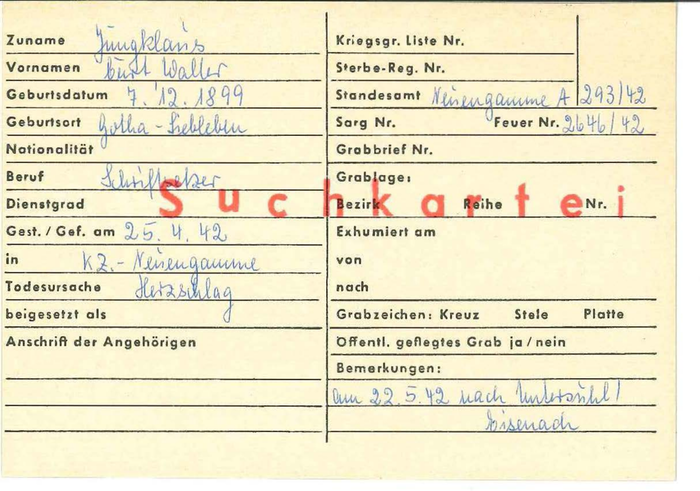 Zuname Jungklaus
Vornamen Curt Walter
Geburtsdatum 7.12.1899
Geburtsort Gotha-Siebleben
Nationalität
Beruf Schriftsetzer
Dienstgrad
Gest./Gef. am 25.4.42
in KZ.-Neuengamme
Todesursache Herzschlag
beigesetzt als
Anschrift der Angehörigen
Suchkartei
Kriegsgr. Liste Nr.
Sterbe-Reg. Nr.
Standesamt Neuengamme A 293/42
Sarg Nr. Feuer Nr. 2646/42
Grabbrief Nr.
Grablage:
Bezirk Reihe Nr.
Exhumiert am
von
nach
Grabzeichen: Kreuz Stele Platte
Öffentl. geflegtes Grab ja/nein
Bemerkungen:
am 22.5.42 nach Untersuhl/
Eisenach